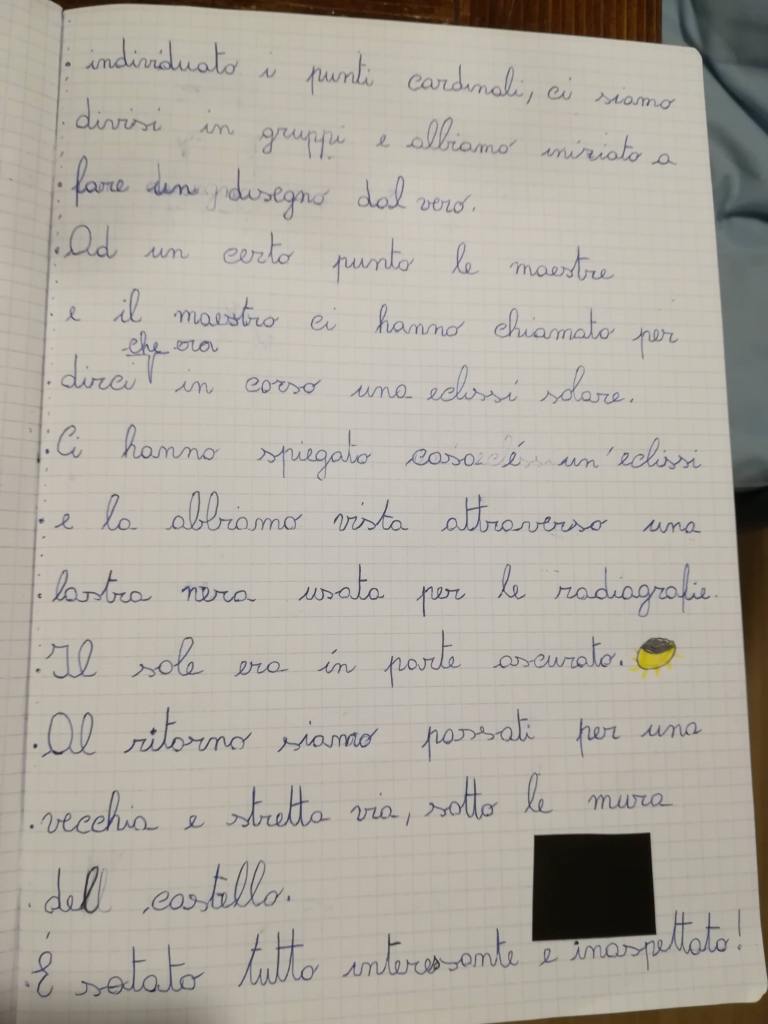 individuato i punti cardinali, ci siamo
divisi in gruppi e abbiamo iniziato a
fare un disegno dal vero.
Ad un certo punto le maestre
e il maestro ci hanno chiamato per
che era
dirci in corso una eclissi solare.
Ci hanno spiegato cosa é un'eclissi
e la abbiamo vista attraverso una
lastra nera usata per le radiografie.
Il sole era in parte oscurato.
Al ritorno siamo passati per una
vecchia e stretta via, sotto le mura
del castello.
È satato tutto interessante e inaspettato!